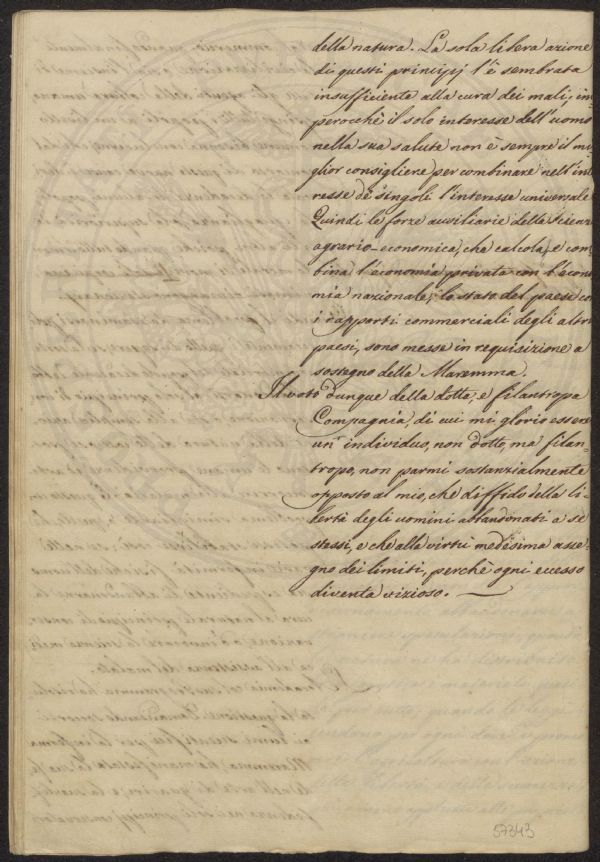 della natura. La sola libera azione
di questi principij l'è sembrata
insufficiente alla cura dei mali, im-
perocchè il solo interesse dell'uomo
nella sua salute non è sempre il mi-
glior consigliere per combinare nell'inte-
resse de' singoli l'interesse universale
Quindi le forze auxiliarie della scienza
agrario-economica, che calcola, e com-
bina l'economia privata con l'econo-
mia nazionale, lo stato del paese co
i rapporti commerciali degli altri
paesi, sono messe in requisizione a
sostegno della Maremma.
Il voto dunque della dotta, e filantropa
Compagnia, di cui mi glorio essere
un' individuo, non dotto, ma filan-
tropo, non parmi sostanzialmente
opposto al mio, che diffido della li-
bertà degli uomini abbandonati a se
stessi, e che alla virtù medesima asse-
gno dei limiti, perchè ogni eccesso
diventa vizioso. —
57343